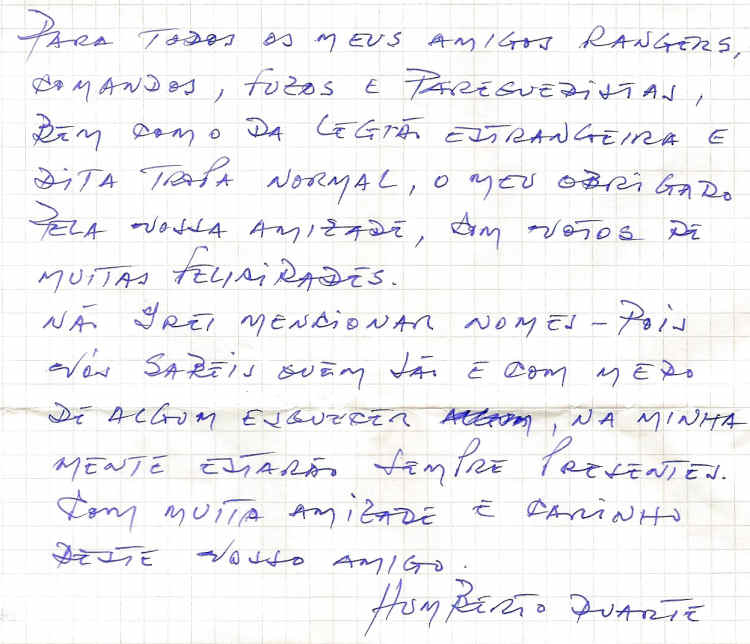 PARA TODOS OS MEUS AMIGOS RANGERS,
COMANDOS, FUZOS E PAREGUEDISTAS,
BEM COMO DA LEGIÃO ESTRANGEIRA E
DITA TROPA NORMAL, O MEU OBRIGADO
PELA VOSSA AMIZADE, COM VOTOS DE
MUITAS FELICIDADES.
NÃO IREI MENCIONAR NOMES - POIS
VÓS SABEIS QUEM SÃO E COM MEDO
DE ALGUM ESQUECER, NA MINHA
MENTE ESTARÃO SEMPRE PRESENTES.
COM MUITA AMIZADE E CARINHO
DESTE VOSSO AMIGO.
HUMBERTO DUARTE